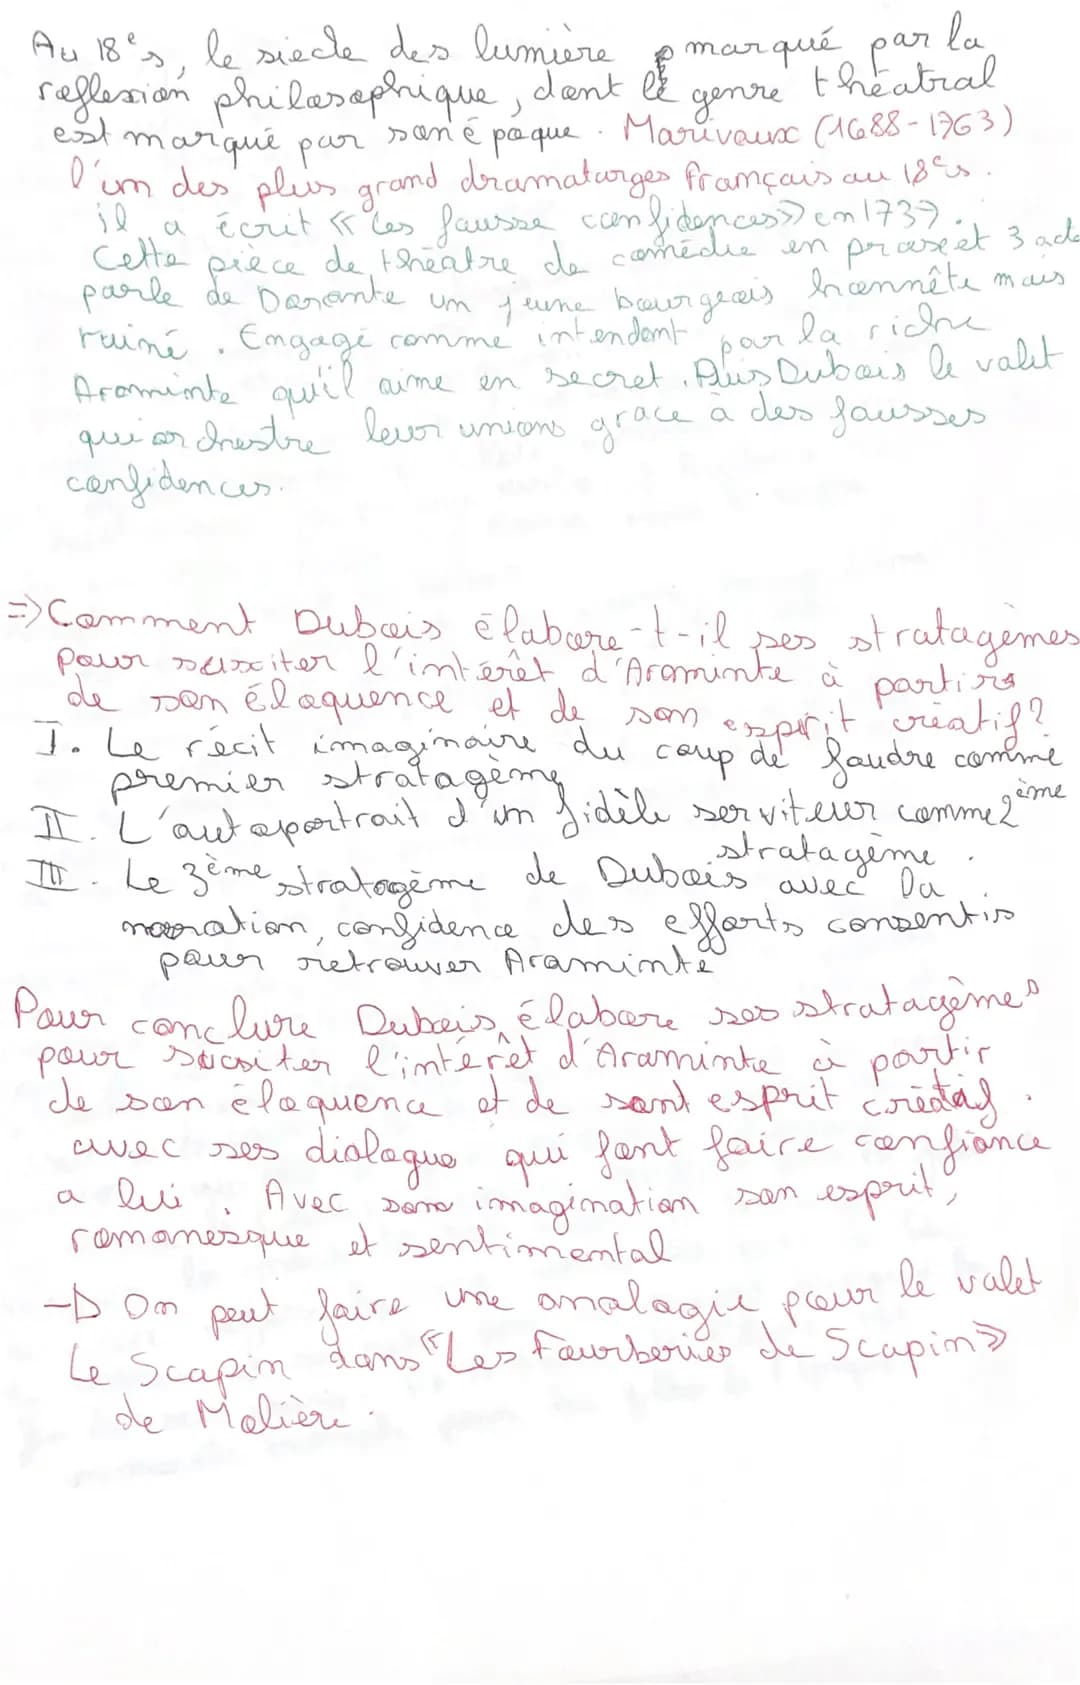 Au 18e s, le siecle des lumière marqué par la
reflexion philosophique, dont le genre théatral
est marqué par son époque. Marivaux (1688-1763)
l'un des plus grand dramaturges français au 18e s.
il a écrit « Les fausse confidences » en 1737.
Cette pièce de théâtre de comédie en prose et 3 acte
parle de Dorante un jeune bourgeois honnête mais
ruiné. Engagé comme intendant par la riche
Araminte qu'il aime en secret. Puis Dubois le valet
qui orchestre leur unions grace à des fausses
confidences.
=> Comment Dubois élabore-t-il ses stratagèmes
pour susciter l'intérêt d'Araminte à partirs
de son éloquence et de son esprit créatif?
I. Le récit imaginaire du coup de foudre comme
premier stratagème
II. L'autoportrait d'un fidèle serviteur comme 2ème
stratagème.
III. Le 3ème stratagème de Dubois avec la
narration, confidence des efforts consentis
pour retrouver Araminte
Pour conclure Dubois élabore ses stratagèmes
pour susciter l'intérêt d'Araminte à partir
de son éloquence et de sont esprit créatif.
avec ses dialogue qui font faire confiance
a lui. Avec son imagination son esprit,
romanesque et sentimental
-> On peut faire une analogie pour le valet
Le Scapin dans "Les Fourberies de Scapin»
de Molière.